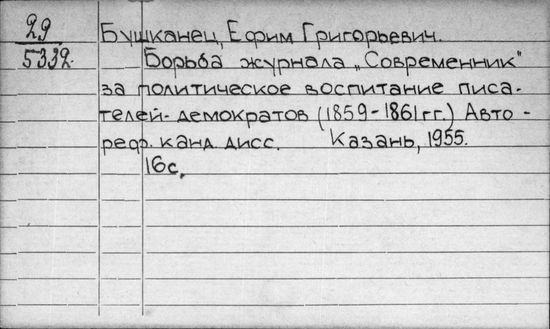 29 Бушканец, Ефим Григорьевич.
5332 Борьба журнала „Современник"
за политическое воспитание писа-
телей-демократов (1859-1861гг.) Авто-
реф. канд. дисс. Казань, 1955.
16с.